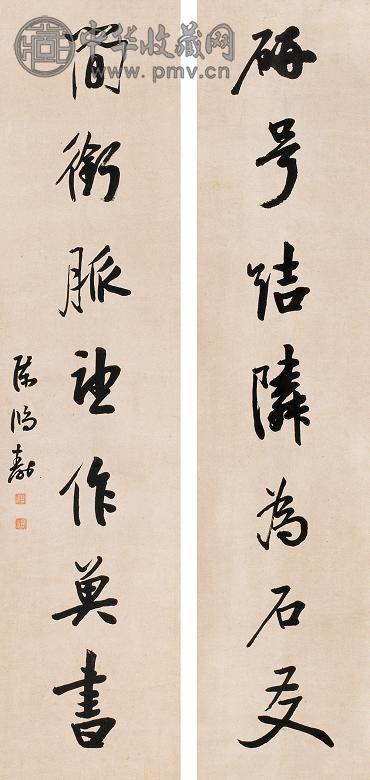 中华收藏网
www.pmv.cn
研号結隣為石友
簡銜脈望作異書
陳鴻壽